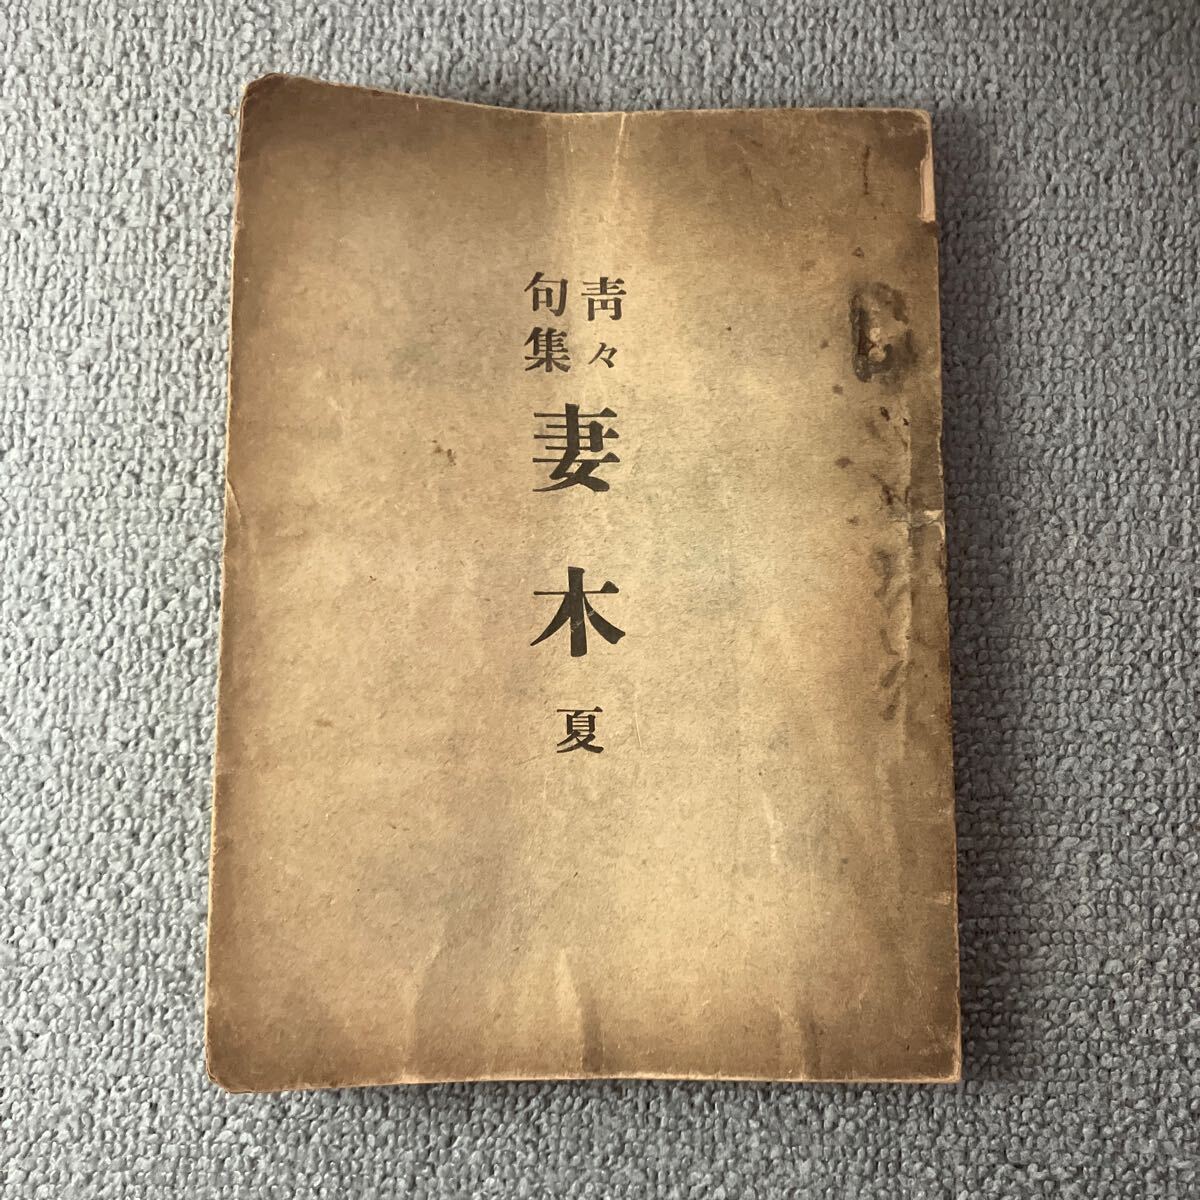 靑々
句集
妻木
夏